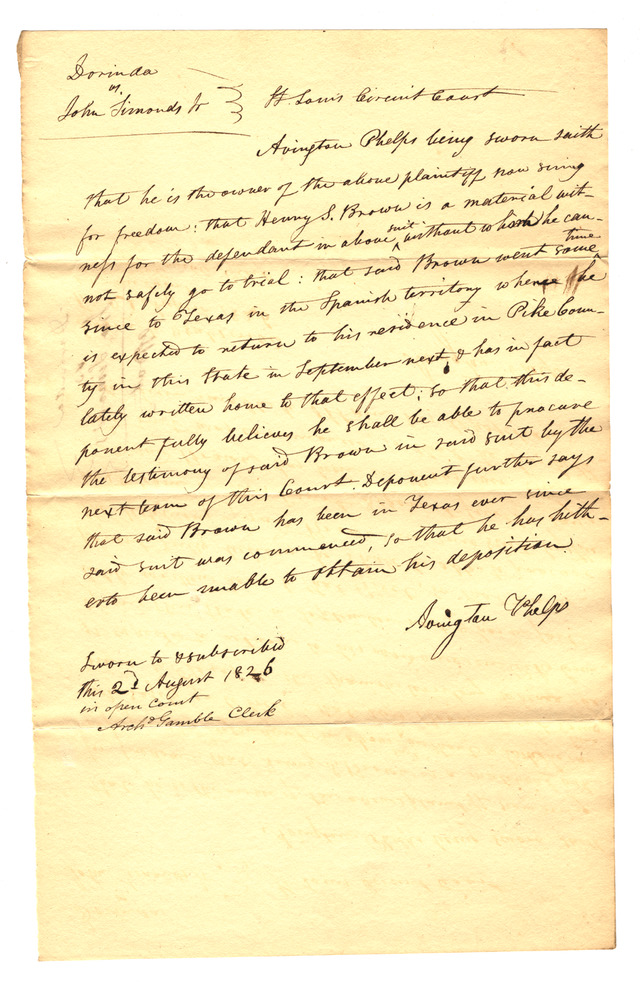 Dorinda
vs
John Simonds Jr } St Louis Circuit Court
Avington Phelps being sworn saith
that he is the owner of the above plaintiff now suing
for freedom: that Henry S. Brown is a material wit-
ness for the defendant in above suit, without whom he can-
not safely go to trial: that said Brown went some time
since to Texas in the Spanish territory whence he
is expected to return to his residence in Pike Coun-
ty in this State in September next, & has in fact
lately written home to that effect; so that this de-
ponent fully believes he shall be able to procure
the testimony of said Brown in said suit by the
next term of this Court. Deponent further says
that said Brown has been in Texas ever since
said suit was commenced, so that he has hith-
erto been unable to obtain his deposition.
Avington Phelps
Sworn to & subscribed
this 2d August 1826
in open court
Archd Gamble Clerk